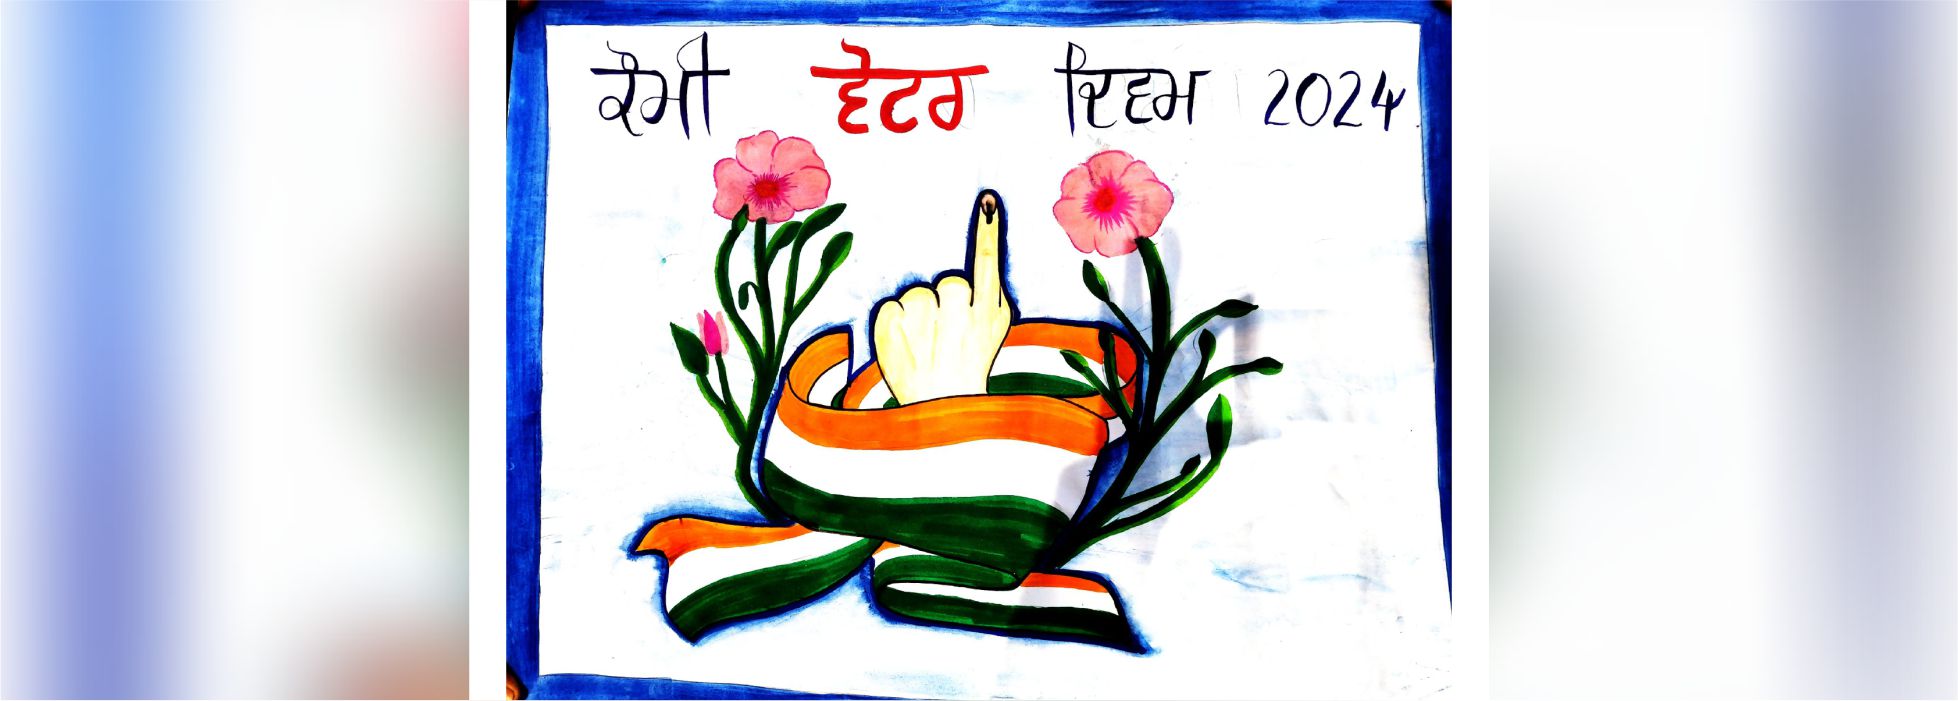 ਕੌਮੀ ਵੋਟਰ ਦਿਵਸ 2024